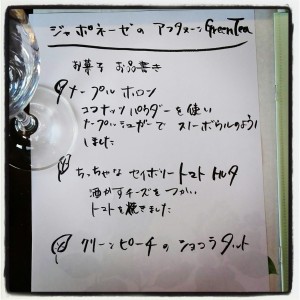 ジャポネーゼの アフタヌーン GreenTea
お菓子 お品書き
メープル ボロン
ココナッツパウダーを使い
メープルシュガーで スノーボウルのように
しました
ちっちゃな セイボリー トマト タルト
酒かすチーズをつかい
トマトを焼きました
グリーンピーチの ショコラタルト